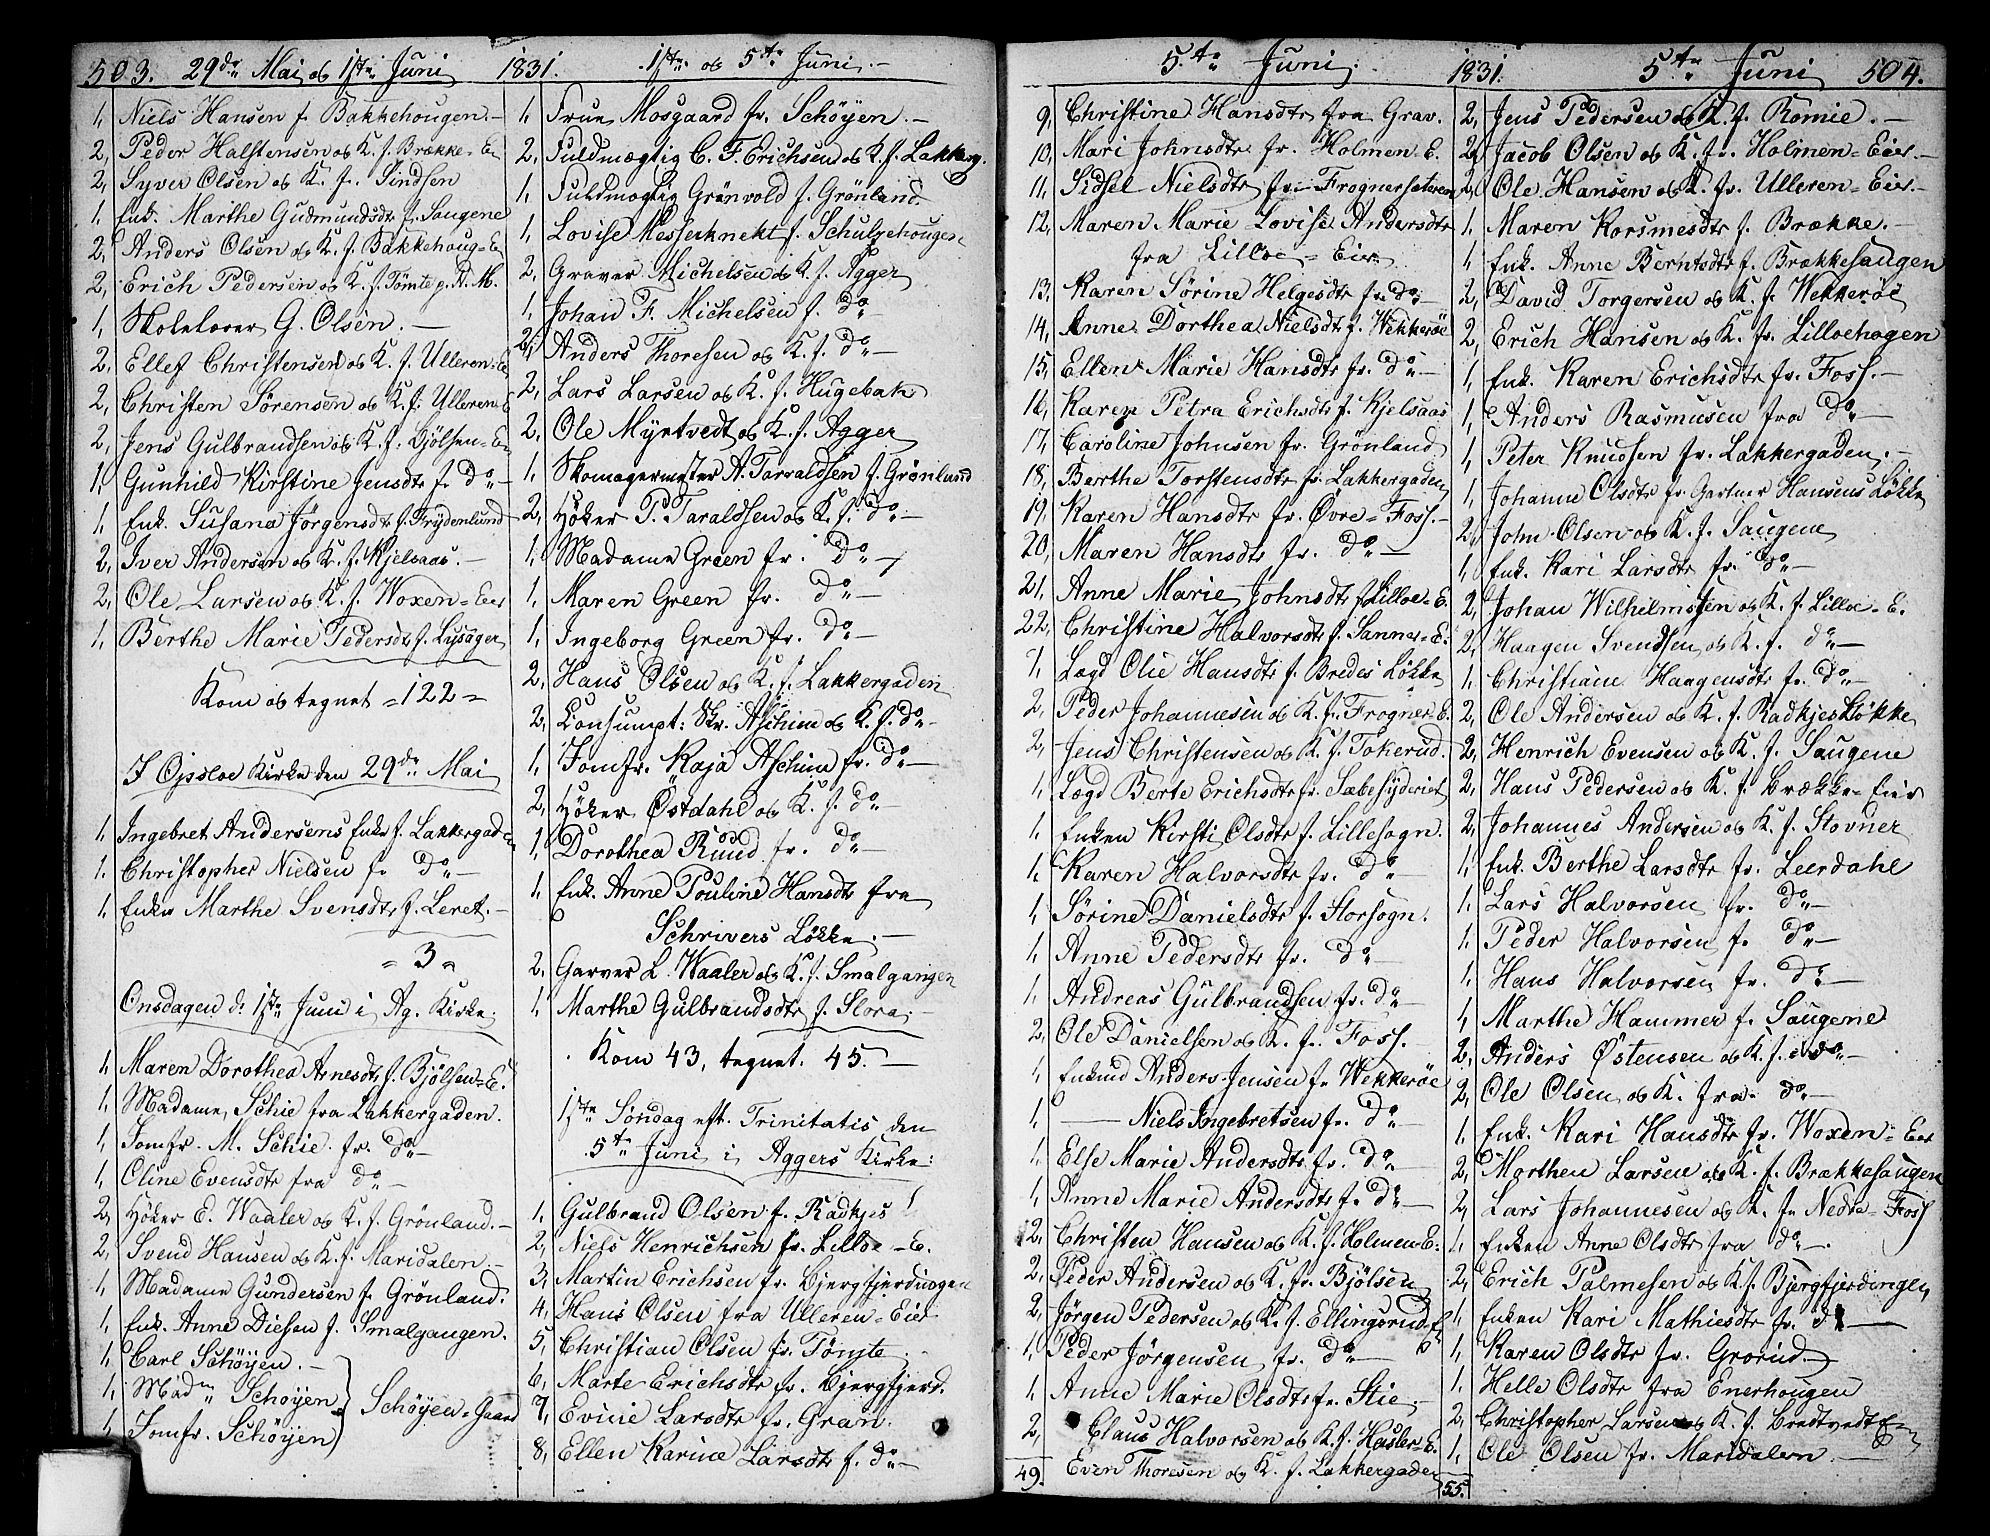 503. 29de Mai og 1ste Juni 1831. 1ste og 5te Juni.
1, Niels Hansen f. Bakkehougen.
2, Peder Halstensen og K. f. Brække-E.
2, Syver Olsen og K. f. Sindsen
1, Enk. Marthe Gudmundsdtr f. Saugene
2, Anders Olsen og K. f. Bakkehoug-E.
2, Erich Pedersen og K. f. Tömte p. H. M.
1, Skolelærer G. Olsen.
2, Ellef Christensen og K. f. Ulleren-E.
2, Christen Sörensen og K. f. Ulleren-E.
2, Jens Gulbrandsen og K. f. Bjölsen-E.
1, Gunhild Kirstine Jensdtr f. do
1, Enk. Susana Jörgensdtr f. Frydenlund
2, Iver Andersen og K. f. Kjelsaas.
2, Ole Larsen og K. f. Woxen-Eier
1, Berthe Marie Pedersdtr f. Lysager
Kom og tegnet = 122 =
I Opsloe Kirke den 29de Mai
1, Ingebret Andersens Enke f. Lakkergaden
1. Christopher Nielsen f. do
1, Enken Marthe Svensdtr f. Leret.
= 3 =
Onsdagen d. 1ste Juni i Ag. Kirke.
1, Maren Dorothea Arnesdtr f. Bjölsen-E.
1, Madame Schie fra Lakkergaden.
1, Jomfr. M. Schie. fr. do
1, Oline Evensdtr fra do
2, Höker E. Waaler og K. f. Grönland.
2, Svend Hansen og K. f. Maridalen.
1, Madame Gundersen f. Grönland.
1, Enk. Anne Diesen f. Smalgangen.
1, Carl Schöyen.
1, Madm Schöyen Schöyen-Gaard
1, Jomfr. Schöyen
1, Frue Mosgaard fr. Schöyen.
2, Fuldmægtig C. F. Erichsen og K. f. Lakkerg.
1, Fuldmægtig Grönvold f. Grönland
1, Lovise Messerknekt f. Schulzehougen
2, Graver Michelsen og K. f. Agger
1, Johan F. Michelsen f. do
2, Anders Thoresen og K. f. do
2, Lars Larsen og K. f. Hugebak
2, Ole Myrtvedt og K. f. Agger
1, Skomagermester A. Tarraldsen f. Grönland
2, Höker P. Taraldsen og K. f. do
1, Madame Green fr. do
1, Maren Green fr. do
1, Ingeborg Green fr. do
2, Hans Olsen og K. f. Lakkergaden
2, Consumpt: Skr. Aschim og K. f. do
1, Jomfr. Kaja Aschim fr. do
2, Höker Østdahl og K. f. do
1, Dorothea Ruud fr. do
1, Enk. Anne Pouline Hansdtr fra
Schrivers Lökke.
2, Garver L. Waaler og K. f. Smalgangen
1, Marthe Gulbrandsdtr f. Flora.
Kom 43, tegnet. 45.
1ste Söndag eft. Trinitatis den
5te Juni i Aggers Kirke:
1, Gulbrand Olsen f. Radkjes
2, Niels Henrichsen fr. Lilloe-E.
3, Martin Erichsen fr. Bjergfjerdingen
4, Hans Olsen fra Ulleren-Eier
5, Christian Olsen fr. Tömte.
6, Marte Erichsdtr fr. Bjergfjerd.
7, Evine Larsdtr fr. Gran.
8, Ellen Karine Larsdtr f. do
5te Juni. 1831. 5te Juni 504.
9, Christine Hansdtr fra Grav.
10, Mari Johnsdtr fr. Holmen E.
11, Sidsel Nielsdtr fr. Frognersæteren
12, Maren Marie Lovise Andersdtr
fra Lilloe-Eier
13, Karen Sörine Helgesdtr fr. do
14, Anne Dorthea Nielsdtr f. Wekkeröe
15, Ellen Marie Hansdtr fr. do
16, Karen Petra Erichsdtr f. Kjelsaas
17, Caroline Johnsen fr. Grönland
18, Berthe Torstensdtr fr. Lakkergaden
19, Karen Hansdtr fr. Øvre-Foss.
20, Maren Hansdtr fr. do
21, Anne Marie Johnsdtr f. Lilloe-E.
22, Christine Halvorsdtr f. Sanner-E.
1, Lægd Olie Hansdtr f. Bredes Lökke
2, Peder Johannesen og K. fr. Frogner-E.
2, Jens Christensen og K. f. Tokerud.
1, Lægd Berte Erichsdtr fr. Sæbesyderiet
1, Enken Kirsti Olsdtr f. Lillesogn.
1, Karen Halvorsdtr fr. do
1, Sörine Danielsdtr f. Storsogn.
1, Anne Pedersdtr fr. do
1, Andreas Gulbrandsen fr. do
2, Ole Danielsen og K. fr. Foss.
1, Enkmd Anders Jensen fr Wekkeröe
1, — Niels Ingebretsen fr. do
1, Else Marie Andersdtr fr. do
1, Anne Marie Andersdtr f. do
2, Christen Hansen og K. f. Holmen-E.
2, Peder Andersen og K. fr. Bjölsen
2, Jörgen Pedersen og K. f. Ellingsrud
1, Peder Jörgensen fr. do
1, Anne Marie Olsdtr fr. Stie
2, Claus Halvorsen og K. f. Hasler-E.
49. Even Thoresen og K. f. Lakkergaden
2, Jens Pedersen og K. f. Romie.
2, Jacob Olsen og K. fr. Holmen-Eier.
2, Ole Hansen og K. fr. Ulleren-Eier
1, Maren Korsmesdtr f. Brække.
1, Enk. Anne Berntsdtr f. Brækkesaugen
2, David Torgersen og K. f. Wekkeröe
2, Erich Hansen og K. fr. Lilloehagen
1, Enk. Karen Erichsdtr fr. Foss.
1, Anders Rasmusen fra do
1, Peter Knudsen fr. Lakkergaden.
1, Johanne Olsdtr fr Gartner Hansens Lökke
2, John Olsen og K. f. Saugene
1, Enk. Kari Larsdtr fr. do
2, Johan Wilhelmsen og K. f. Lilloe-E.
2, Haagen Svendsen og K. f. do
1, Christiane Haagensdtr fr. do
2, Ole Andersen og K. f. Radkjes Lökke
2, Henrich Evensen og K. f. Saugene
2, Hans Pedersen og K. f Brække-Eier
2, Johannes Andersen og K. f. Stovner
1, Enk. Berthe Larsdtr fr. Leerdahl
1. Lars Halvorsen fr. do
1. Peder Halvorsen f. do
1. Hans Halvorsen fr. do
1, Marthe Hammer f. Saugene
2, Anders Østensen og K. f. do
2, Ole Olsen og K. fra. do
1. Enk. Kari Hansdtr fr. Woxen-Eier
2, Morthen Larsen og K. f. Brækkesaugen
2, Lars Johannesen og K. fr Nedre-Foss
1. Enken Anne Olsdtr fra do
2, Erich Palmesen og K. f. Bjergfjerdingen
1. Enken Kari Mathiesdtr fr. do
1. Karen Olsdtr fr. Grorud
1. Helle Olsdtr fra Enerhougen
2, Christopher Larsen og K. f. Bredtvedt E.
1, Ole Olsen fr. Maridalen.
55.